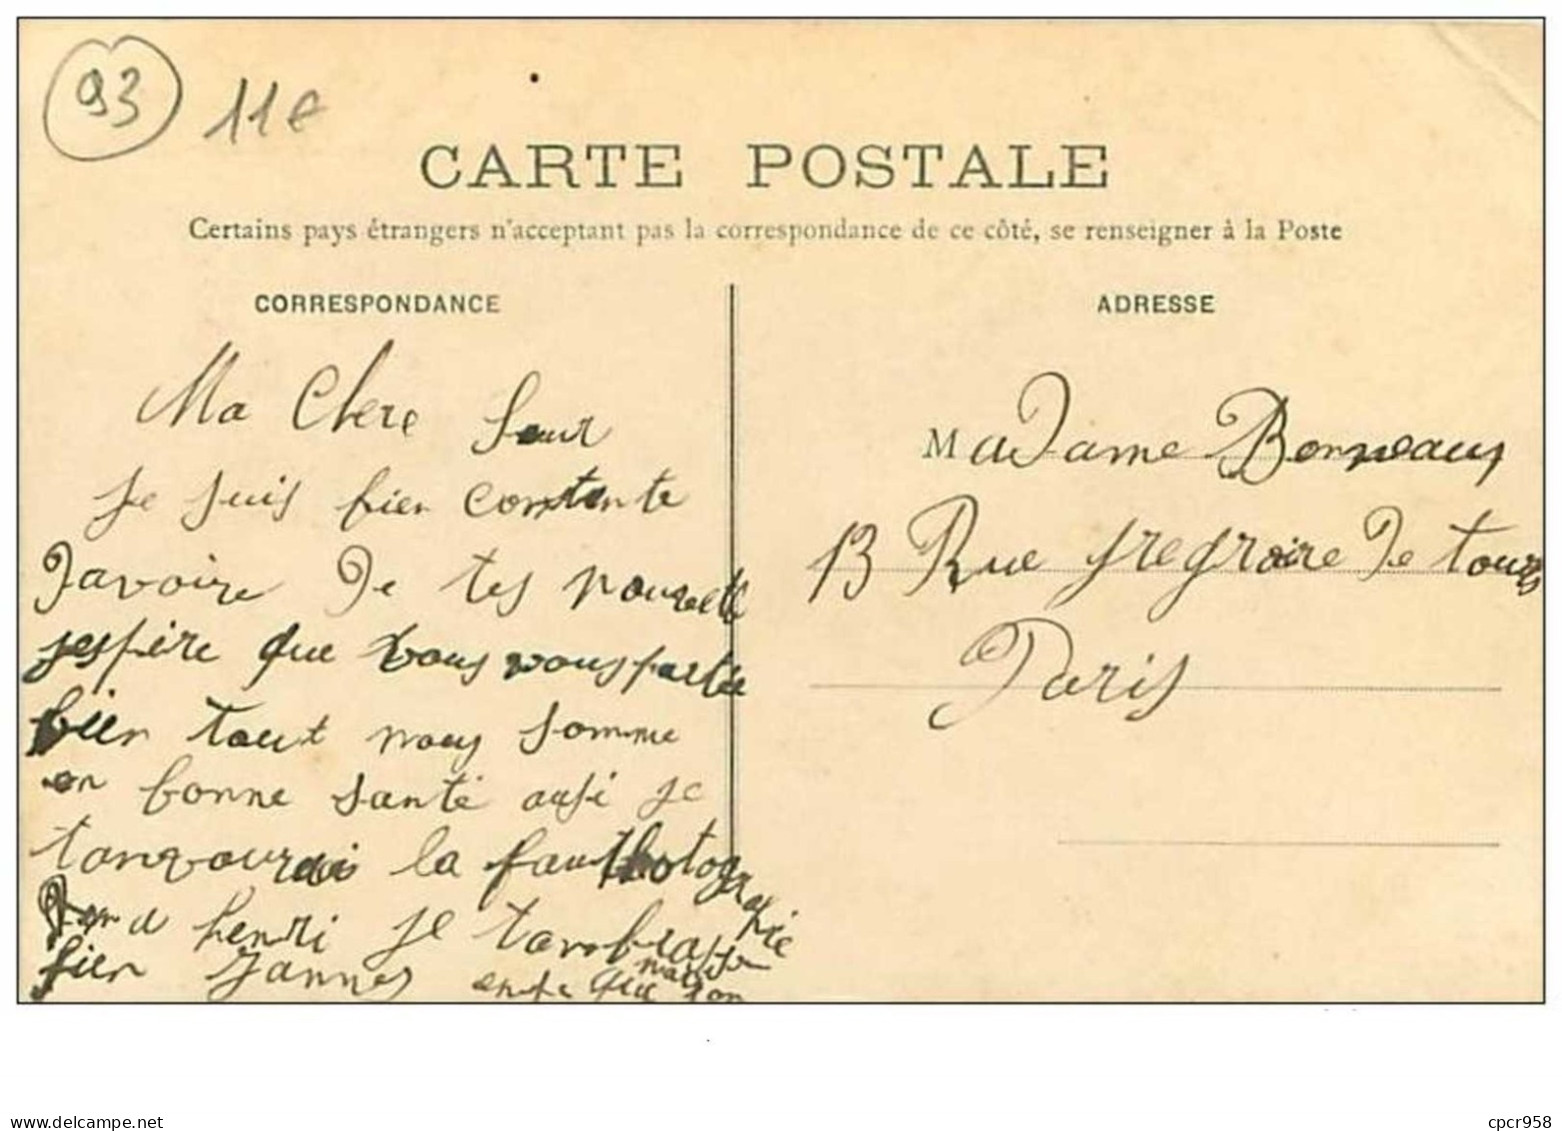 93 11€
CARTE POSTALE
Certains pays étrangers n'acceptant pas la correspondance de ce côté, se renseigner à la Poste
CORRESPONDANCE
Ma Chere Seur
je suis bien contente
davoire de tes nouvelle
jespère que vous vous portée
bien tout nous somme
en bonne santé ausi je
tanvourais la photographie
henri je tambrasse
bien Jannes que mon
ADRESSE
Madame Bonneaus
13 Rue gregroire de tours
Paris
www.delcampe.net
cpcr958